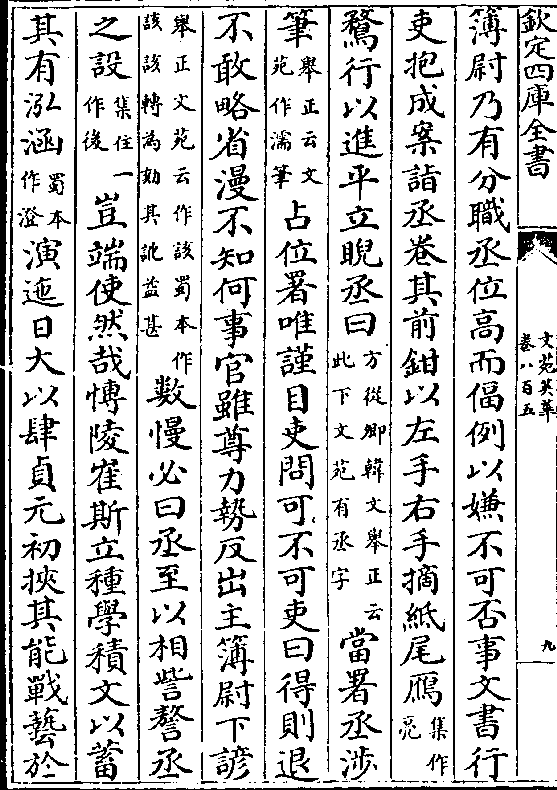 欽定四庫全書
文苑英華
卷八百五
九
簿尉乃有分職丞位高而偪例以嫌不可否事文書行
吏抱成案詣丞卷其前鉗以左手右手摘紙尾鴈集作亮
鶩行以進平立睨丞曰方從卿韓文舉正云此下文苑有丞字當署丞涉
筆舉正云文苑作濡筆占位署唯謹目吏問可不可吏曰得則退
不敢略省漫不知何事官雖尊力勢反出主簿尉下諺
舉正文苑云作該蜀本作該該轉為劾其訛益甚數慢必曰丞至以相訾謷丞
之設集住作後一豈端使然哉愽陵崔斯立種學積文以蓄
其有泓涵蜀本作澄演迤日大以肆貞元初挾其能戰藝於